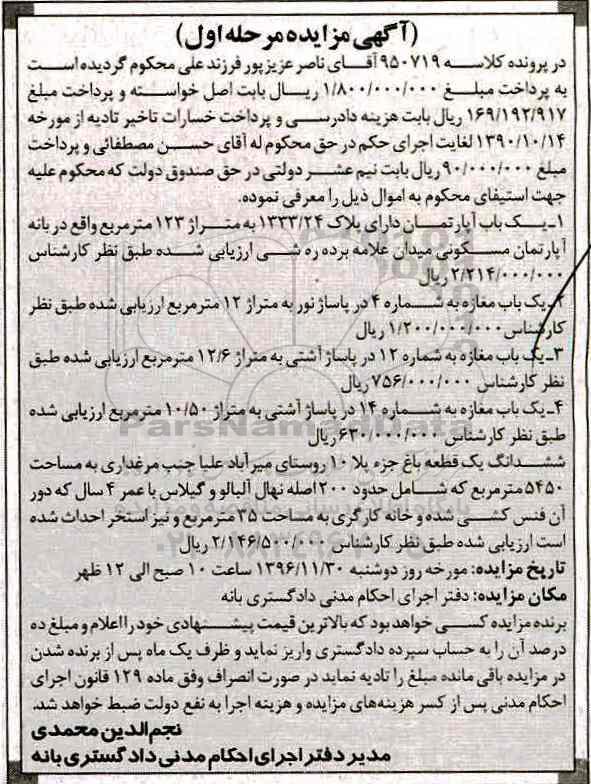 (آگهی مزایده مرحله اول)
در پرونده کلاسه ۹۵۰۷۱۹ آقای ناصر عزیزپور فرزند علی محکوم گردیده است
به پرداخت مبلغ ۱/۸۰۰/۰۰۰/۰۰۰ ریال بابت اصل خواسته و پرداخت مبلغ
۱۶۹/۱۹۲/۹۱۷ ریال بابت هزینه دادرسی و پرداخت خسارات تاخیر تادیه از مورخه
۱۳۹۰/۱۰/۱۴ لغایت اجرای حکم در حق محکوم له آقای حسن مصطفائی و پرداخت
مبلغ ۹۰/۰۰۰/۰۰۰ ریال بابت نیم عشر دولتی در حق صندوق دولت که محکوم علیه
جهت استیفای محکوم به اموال ذیل را معرفی نموده.
۱-یک باب آپارتمان دارای پلاک ۱۳۳۳/۲۴ به متراژ ۱۲۳ مترمربع واقع در بانه
آپارتمان مسکونی میدان علامه برده ره شی ارزیابی شده طبق نظر کارشناس
۲/۲۱۴/۰۰۰/۰۰۰ ریال
۲-یک باب مغازه به شماره ۴ در پاساژ نور به متراژ ۱۲ مترمربع ارزیابی شده طبق نظر
کارشناس ۱/۲۰۰/۰۰۰/۰۰۰ ریال
۳-یک باب مغازه به شماره ۱۲ در پاساژ آشتی به متراژ ۱۲/۶ مترمربع ارزیابی شده طبق
نظر کارشناس ۷۵۶/۰۰۰/۰۰۰ ریال
۴-یک باب مغازه به شماره ۱۴ در پاساژ آشتی به متراژ ۱۰/۵۰ مترمربع ارزیابی شده
طبق نظر کارشناس ۶۳۰/۰۰۰/۰۰۰ ریال
ParsNamadData
ششدانگ یک قطعه باغ جزء پلا ۱۰ روستای میرآباد علیا جنب مرغداری به مساحت
۵۴۵۰ مترمربع که شامل حدود ۲۰۰ اصله نهال آلبالو و گیلاس با عمر ۴ سال که دور
آن فنس کشی شده و خانه کارگری به مساحت ۳۵ مترمربع و نیز استخر احداث شده
است ارزیابی شده طبق نظر کارشناس ۲/۱۴۶/۵۰۰/۰۰۰ ریال
تاریخ مزایده: مورخه روز دوشنبه ۱۳۹۶/۱۱/۳۰ ساعت ۱۰ صبح الی ۱۲ ظهر
مکان مزایده: دفتر اجرای احکام مدنی دادگستری بانه
برنده مزایده کسی خواهد بود که بالاترین قیمت پیشنهادی خود را اعلام و مبلغ ده
درصد آن را به حساب سپرده دادگستری واریز نماید و ظرف یک ماه پس از برنده شدن
در مزایده باقی مانده مبلغ را تادیه نماید در صورت انصراف وفق ماده ۱۲۹ قانون اجرای
احکام مدنی پس از کسر هزینه‌های مزایده و هزینه اجرا به نفع دولت ضبط خواهد شد.
نجم‌الدین محمدی
مدیر دفتر اجرای احکام مدنی دادگستری بانه